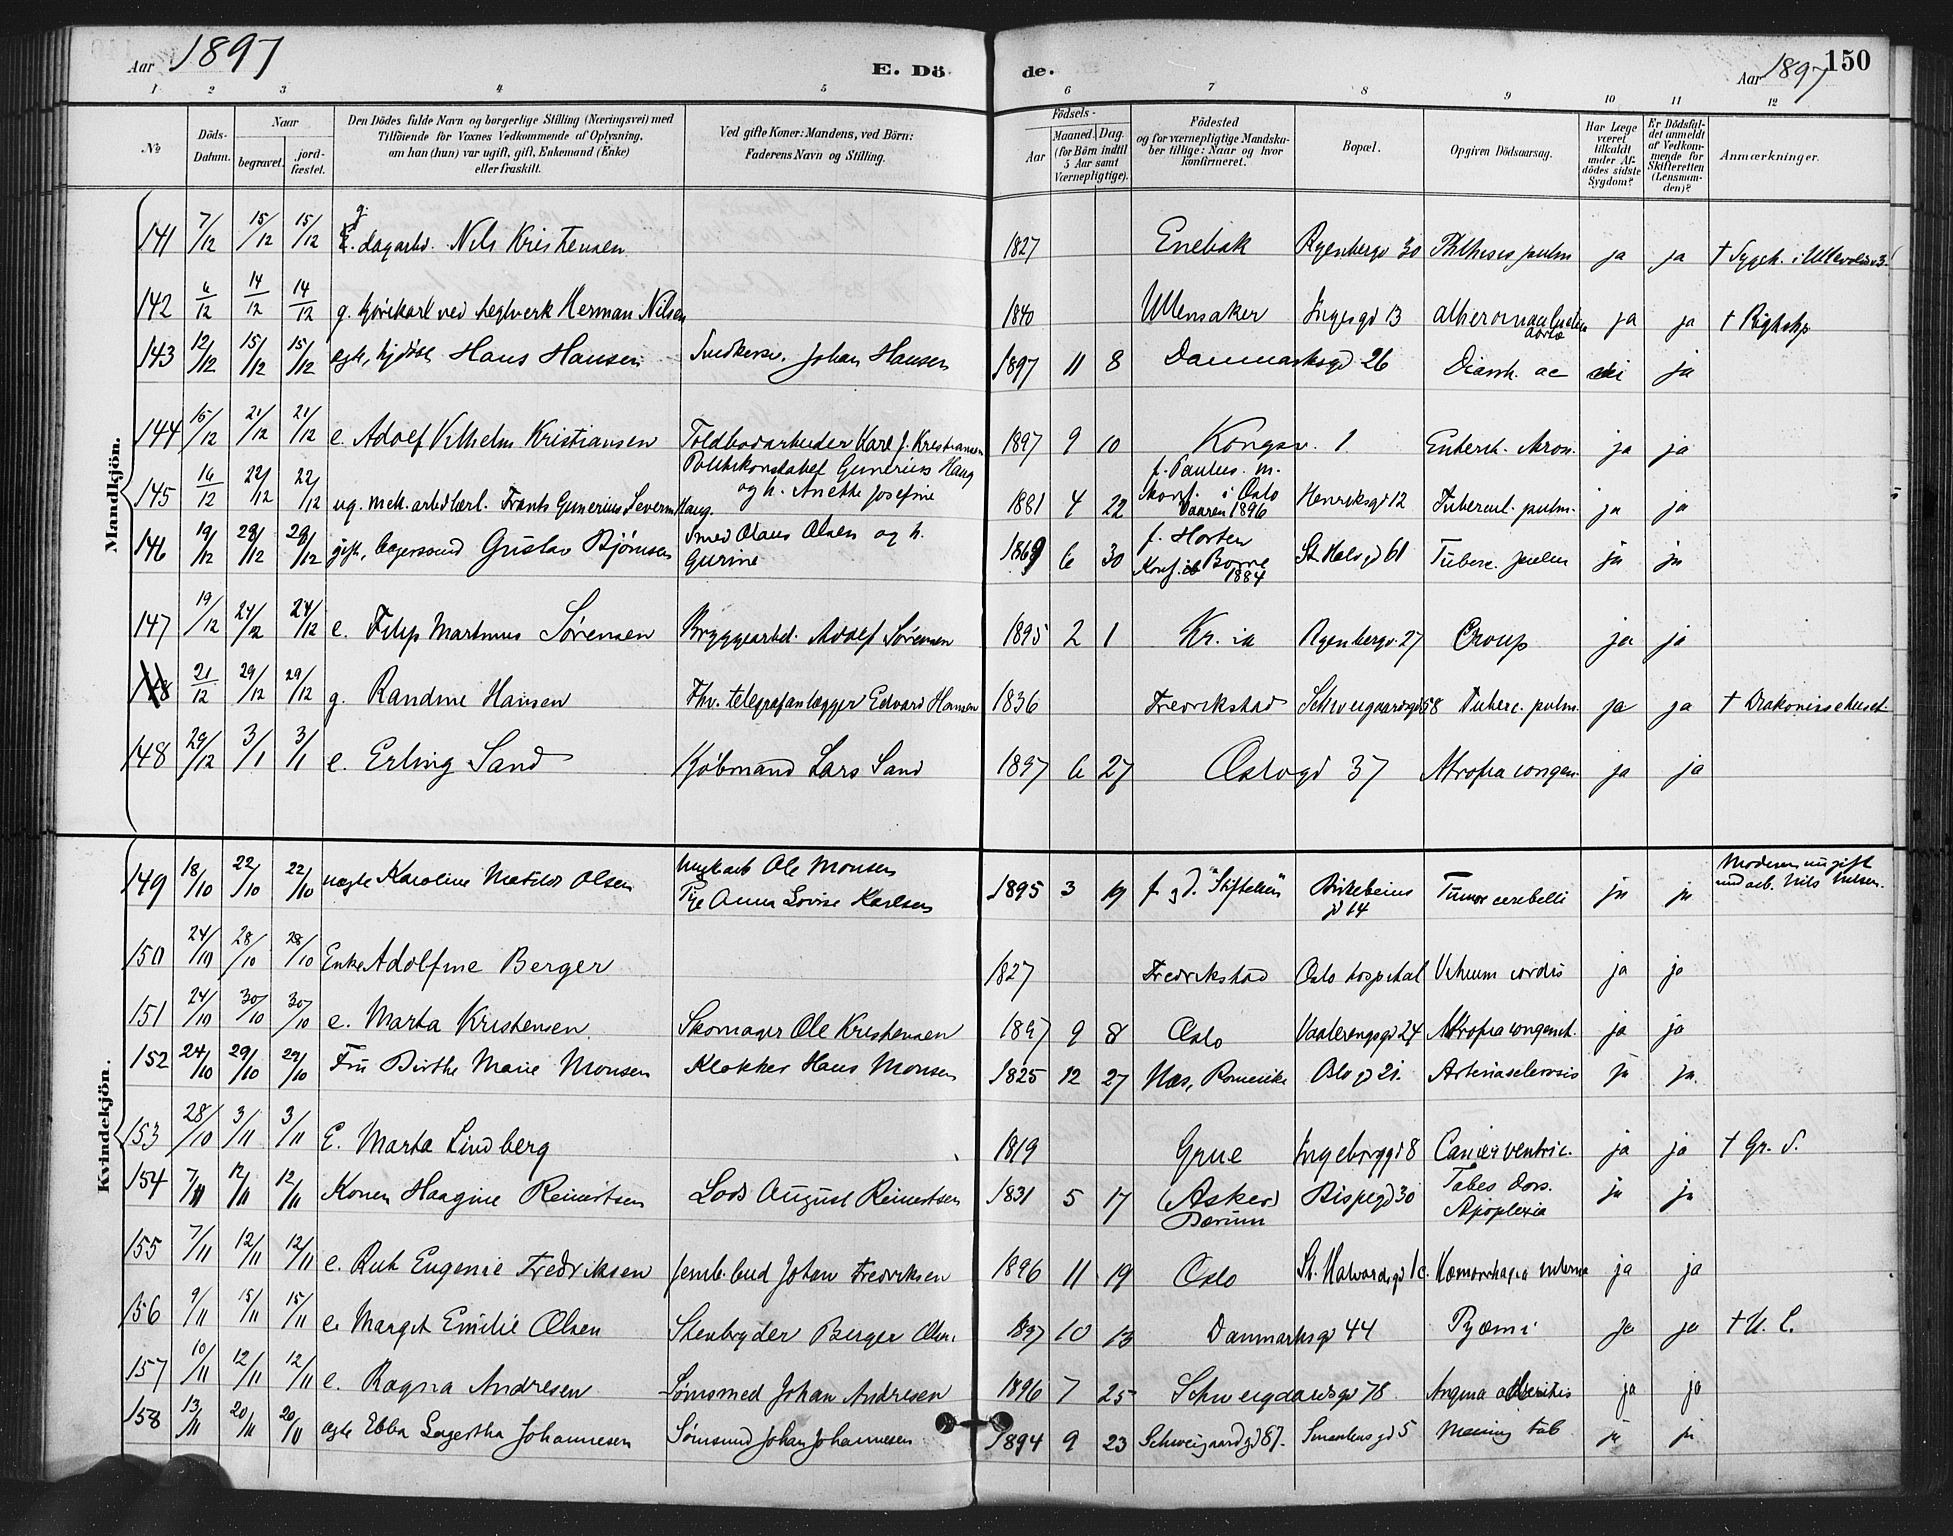 Aar 1897 E. Dö
1 2 3 4 5
№ Döds-Datum. Naar begravet. jordfæstet. Den Dödes fulde Navn og borgerlige Stilling (Næringsvei) med Tilföiende for Voxnes Vedkommende af Oplysning, om han (hun) var ugift, gift, Enkemand (Enke) eller fraskilt. Ved gifte Koner: Mandens, ved Börn: Faderens Navn og Stilling.
de. Aar 1897 150
6 7 8 9 10 11 12
Födsels- Aar Maaned. Dag. (for Börn indtil 5 Aar samt Værnepligtige). Födested og for værnepligtige Mandskaber tillige: Naar og hvor konfirmeret. Bopæl. Opgiven Dödsaarsag. Har Læge været tilkaldt under Afdödes sidste Sygdom? Er Dödsfaldet anmeldt af Vedkommende for Skifteretten (Lensmanden)? Anmærkninger.
Mandkjön.
141 7/12 15/12 15/12 g. dagarb. Nils Kristensen 1827 Enebak Ryenbergv 30 Phthisis pulm ja ja † Sygeh. i
142 6/12 14/12 14/12 g. kjørekarl ved teglverk Herman Nilsen 1840 Ullensaker Ingesgd 13 ja ja † Rigshsp
143 12/12 15/12 15/12 egte, hjdøbt Hans Hansen Snedkersv. Johan Hansen 1897 11 8 Danmarksgd 26 Diarrh. ac nei ja
144 15/12 21/12 21/12 e. Adolf Vilhelm Kristiansen Toldbodarbeider Karl J. Kristiansen 1897 9 10 Kongsv. 1. Enterit. kron. ja ja
145 16/12 22/12 22/12 ug. mek. arb.lærl. Frants Gunerius Severin Haug. Politikonstabel Gunerius Haug og h. Anette Josefine 1881 4 22 f. Paulus. m. Konf. i Oslo Vaaren 1896 Henriksgd 12 Tubercul. pulm. ja ja
146 19/12 28/12 28/12 gift, Gustav Bjørnsen Smed Olaus Olsen og h. Gurine 1869 6 30 f. Horten Konf. i Borre 1884 St Halvgd 61 Tuberc. pulm ja ja
147 19/12 24/12 24/12 e. Filip Martinus Sørensen Bryggearbd. Adolf Sørensen 1895 2 1 Kr. ia Ryenbergv. 27 Croup ja ja
148 21/12 29/12 29/12 g. Randine Hansen Fhv. telegrafanlægger Edvard Hansen 1836 Fredrikstad Schweigaardsgd 58 Tuberc. pulm. ja ja † Diakonissehuset
148 29/12 3/1 3/1 e. Erling Sand Kjøbmand Lars Sand 1897 6 27 Oslogd 37 Atrofia congen. ja ja
Kvindekjön.
149 18/10 22/10 22/10 uegte Karoline Matilde Olsen Ole Monsen Pige Anna Lovise Karlsen 1895 3 19 f. g d. "Stiftelsen" Birkebeinsgd 14 Tumor cerebelli ja ja Moderen nu gift med arb. Nils
150 24/10 28/10 28/10 Enke Adolfine Berger 1827 Fredrikstad Oslo hospital Vitium cordis ja ja
151 24/10 30/10 30/10 e. Marta Kristensen Skomager Ole Kristensen 1897 9 8 Oslo Vaalerengsgd 24 Atrofia congenit. ja ja
152 24/10 29/10 29/10 Fru Birthe Marie Monsen Klokker Hans Monsen 1825 12 27 Næs, Romerike Oslogd 21. Arteriasclerosis ja ja.
153 28/10 3/11 3/11 E. Marta Lindberg 1819 Grue Ingeborggd 8 Cancer ventric. ja ja † Gr. S.
154 7/11 12/11 12/11 Konen Haagine Reinertsen Lods August Reinertsen 1831 5 17 (Asker) Bærum Bispegd 30 Tabes dors. Apoplexia ja ja
155 7/11 12/11 12/11 e. Rut Eugenie Fredriksen Jernb. bud Johan Fredriksen 1896 11 19 Oslo St. Halvardsgd 1c. Hæmorrhagia interna ja ja
156 9/11 15/11 15/11 e. Margit Emilie Olsen Stenbryder Berger Olsen 1897 10 13 Danmarksgd 44 Pyæmi ja ja † U. S.
157 10/11 12/11 12/11 e. Ragna Andresen Sømsmed Johan Andresen 1896 7 25 Schweigaardsgd 78. Angina ja ja
158 13/11 20/11 20/11 egte Ebba Lagertha Johannesen Sømsmed Johan Johannesen 1894 9 23 Schweigaardgd 87. Smaalensgd 5 Mening tub ja ja